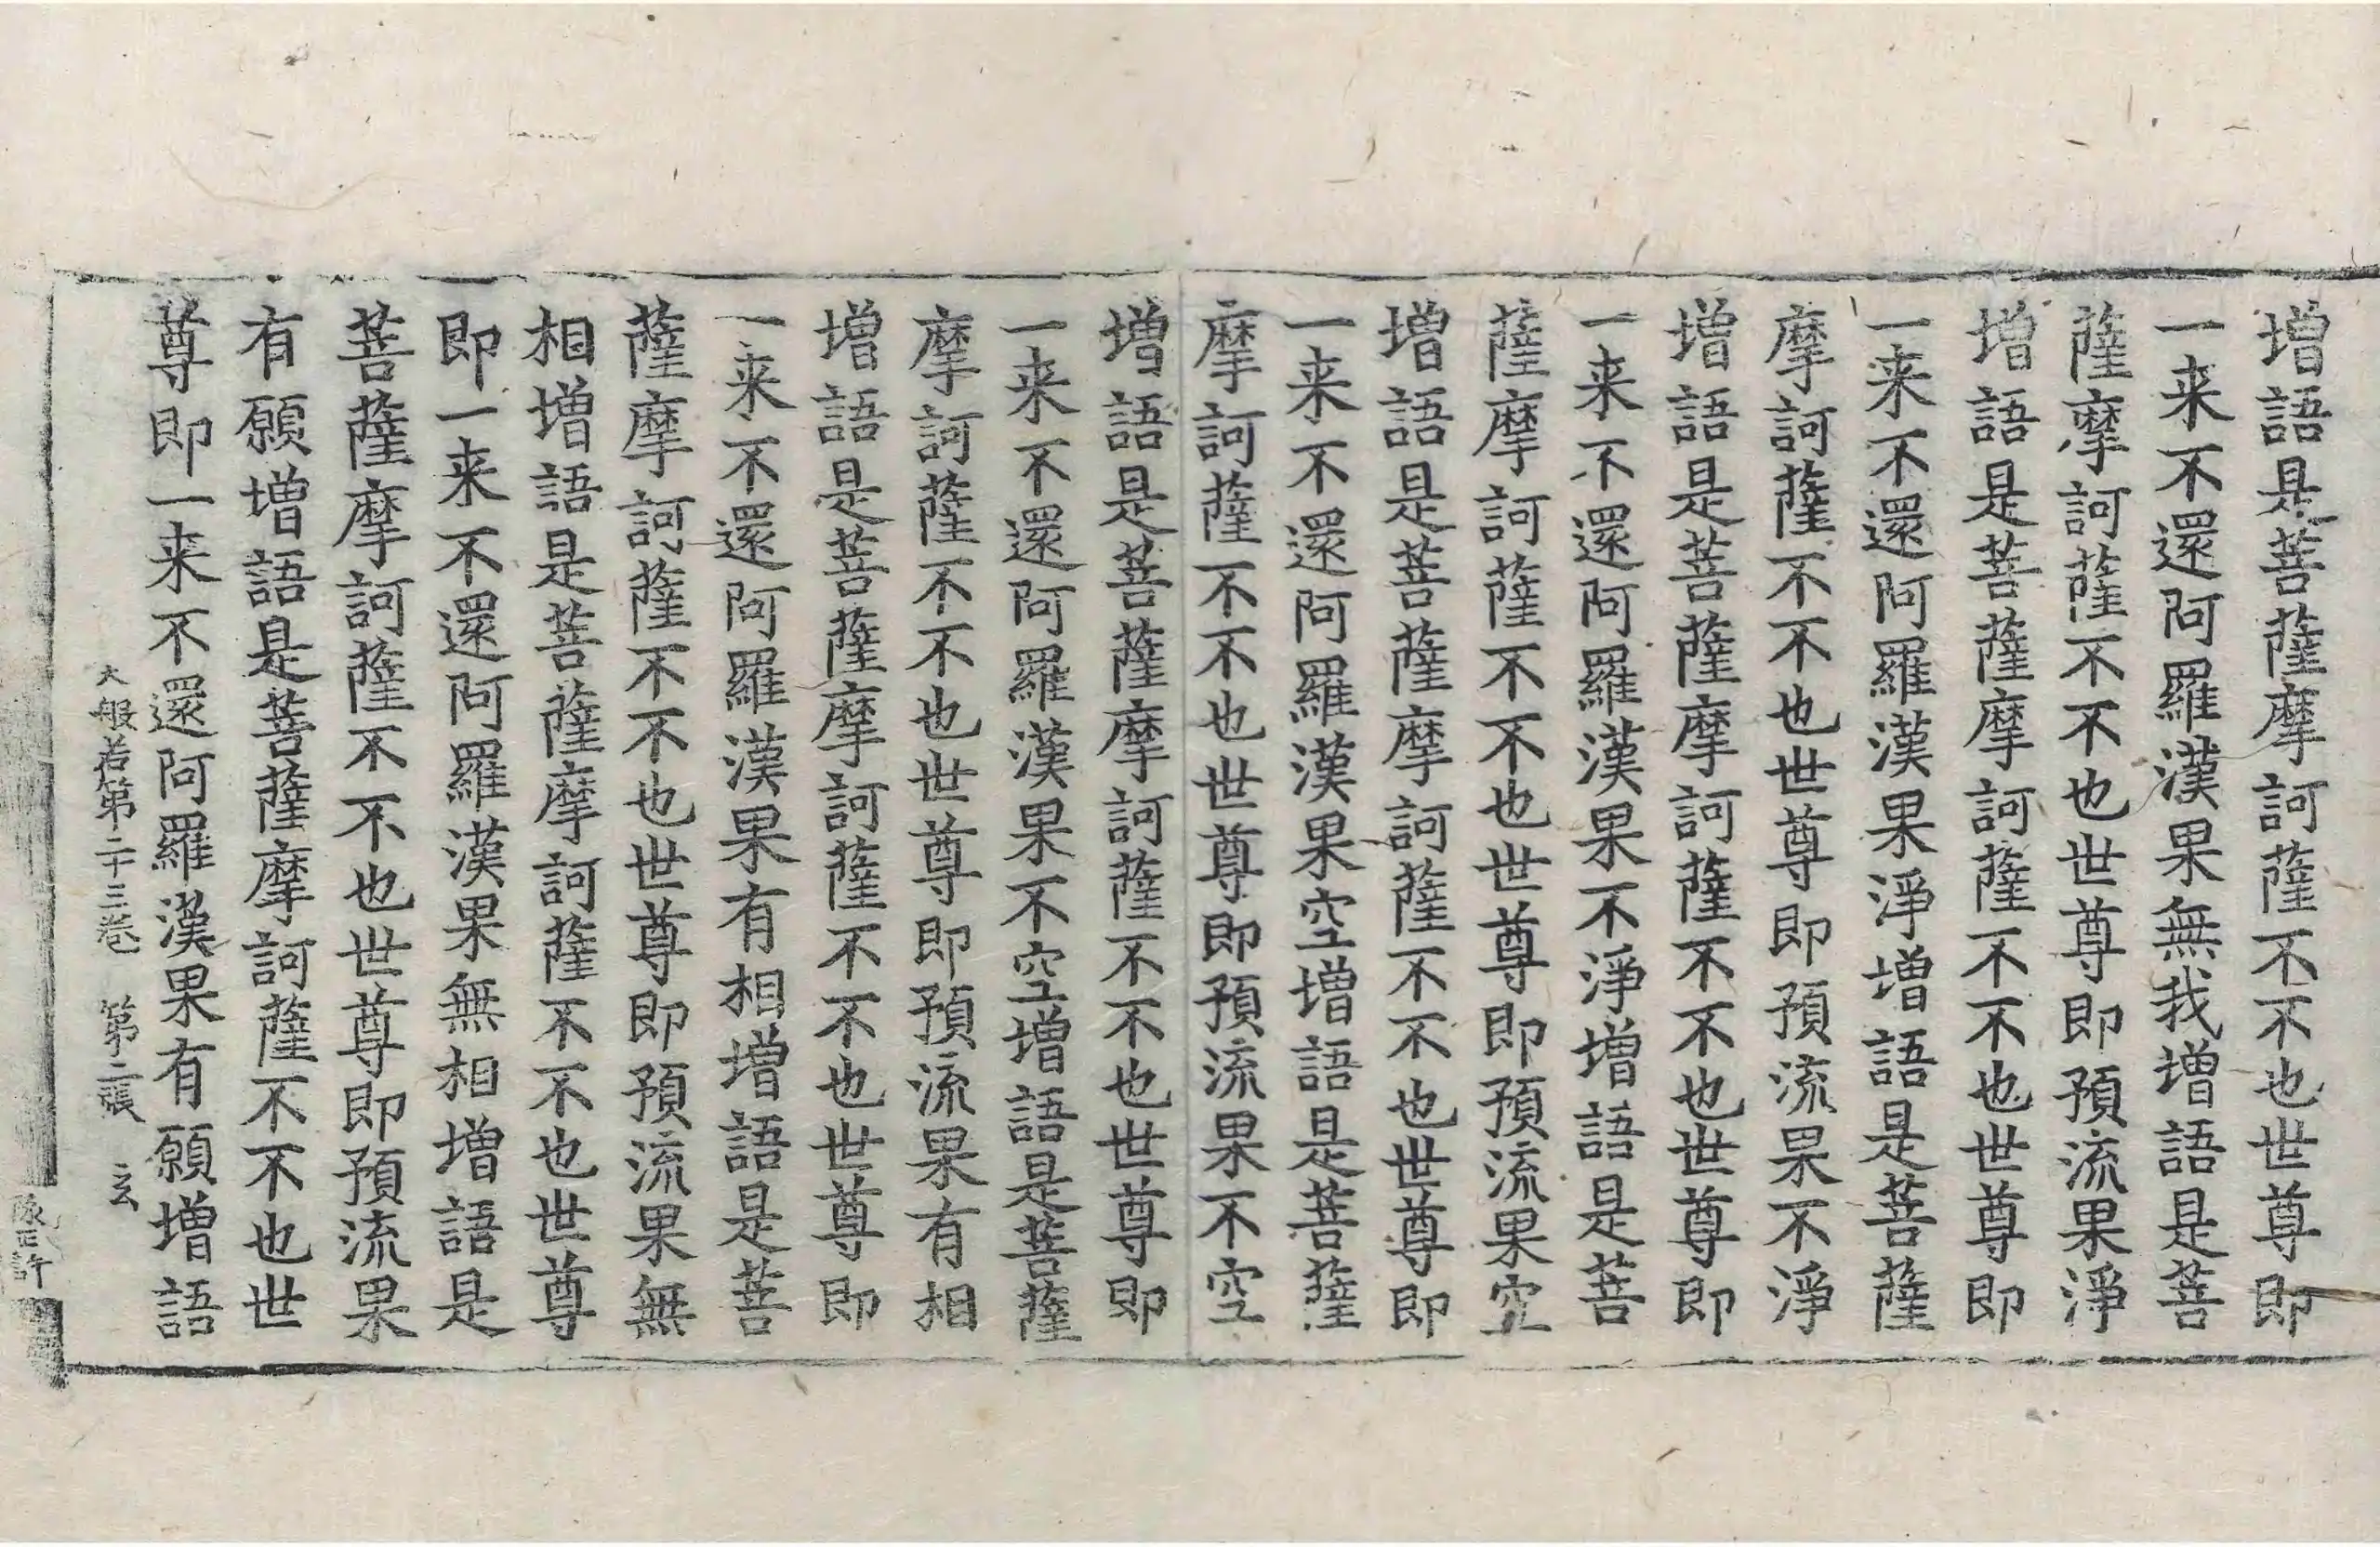 増語是菩薩摩訶薩不不也世尊即
一来不還阿羅漢果無我増語是菩
薩摩訶薩不不也世尊即預流果淨
増語是菩薩摩訶薩不不也世尊即
一来不還阿羅漢果淨増語是菩薩
摩訶薩不不也世尊即預流果不淨
増語是菩薩摩訶薩不不也世尊即
一来不還阿羅漢果不淨増語是菩
薩摩訶薩不不也世尊即預流果空
増語是菩薩摩訶薩不不也世尊即
一来不還阿羅漢果空増語是菩薩
摩訶薩不不也世尊即預流果不空
増語是菩薩摩訶薩不不也世尊即
一来不還阿羅漢果不空増語是菩薩
摩訶薩不不也世尊即預流果有相
増語是菩薩摩訶薩不不也世尊即
一来不還阿羅漢果有相増語是菩
薩摩訶薩不不也世尊即預流果無
相増語是菩薩摩訶薩不不也世尊
即一来不還阿羅漢果無相増語是
菩薩摩訶薩不不也世尊即預流果
有願増語是菩薩摩訶薩不不也世
尊即一来不還阿羅漢果有願増語
大般若第二十三卷 第二張 玄